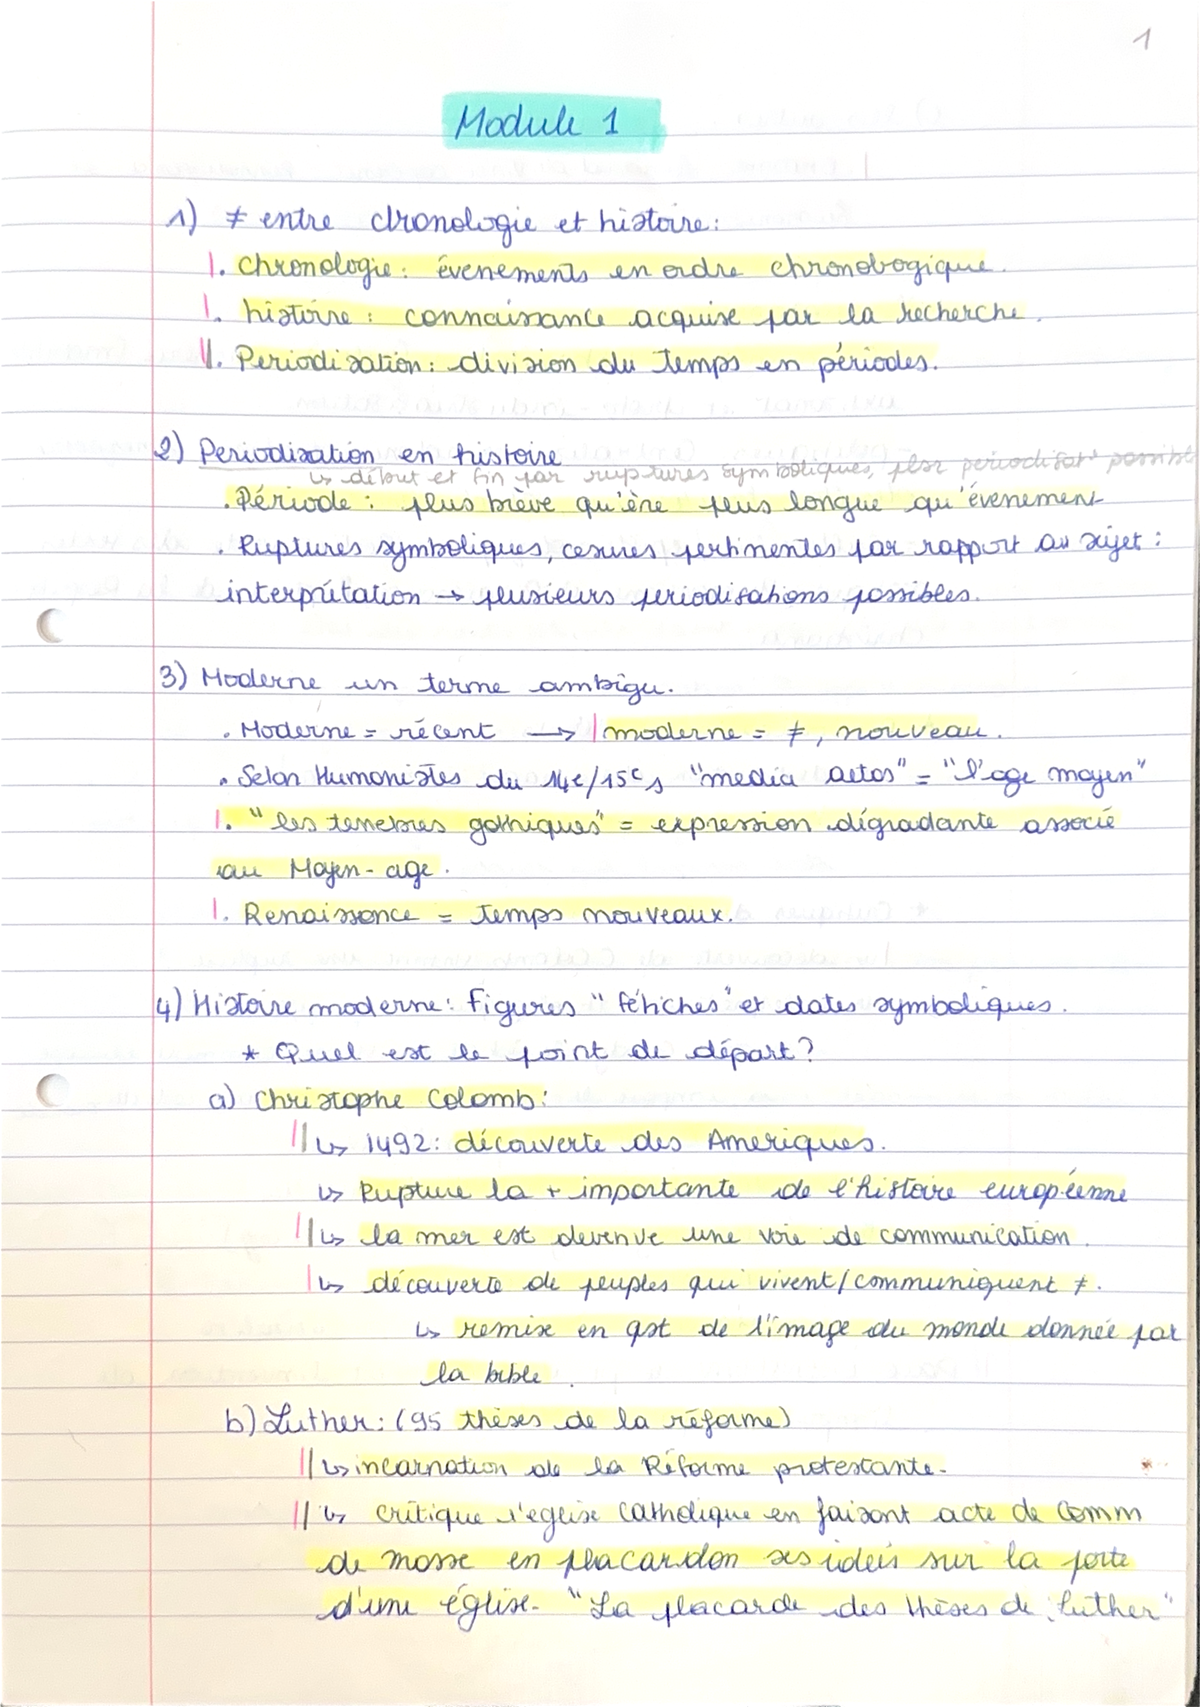 1
Module 1
1) ≠ entre chronologie et histoire:
. chronologie: évenements en ordre chronologique.
. histoire: connaissance acquise par la recherche.
. Periodization: division du temps en périodes.
2) Periodisation en histoire
↳ début et fin par ruptures symboliques, plsr periodisat° possible
. Période: plus brève qu'ère plus longue qu'évenement
. Ruptures symboliques, cesures pertinentes par rapport au sujet:
interprétation → plusieurs periodisations possibles.
3) Moderne un terme ambigu.
. Moderne = récent → moderne = ≠, nouveau.
. Selon Humanistes du 14e/15e s "media aetas" = "l'age moyen"
. "les tenebres gothiques" = expression dégradante associé
au Moyen-age.
. Renaissance = temps nouveaux.
4) Histoire moderne: figures "fétiches" et dates symboliques.
* Quel est le point de départ?
a) Christophe Colomb:
↳ 1492: découverte des Ameriques.
↳ Rupture la + importante de l'histoire européenne
↳ la mer est devenue une voie de communication.
↳ découverte de peuples qui vivent/communiquent ≠.
↳ remise en qst de l'image du monde donnée par
la bible.
b) Luther: (95 thèses de la réforme)
↳ incarnation de la Réforme protestante.
↳ critique l'eglise catholique en faisant acte de comm
de masse en placardon ses ideés sur la porte
d'une église. "La placarde des thèses de Luther"